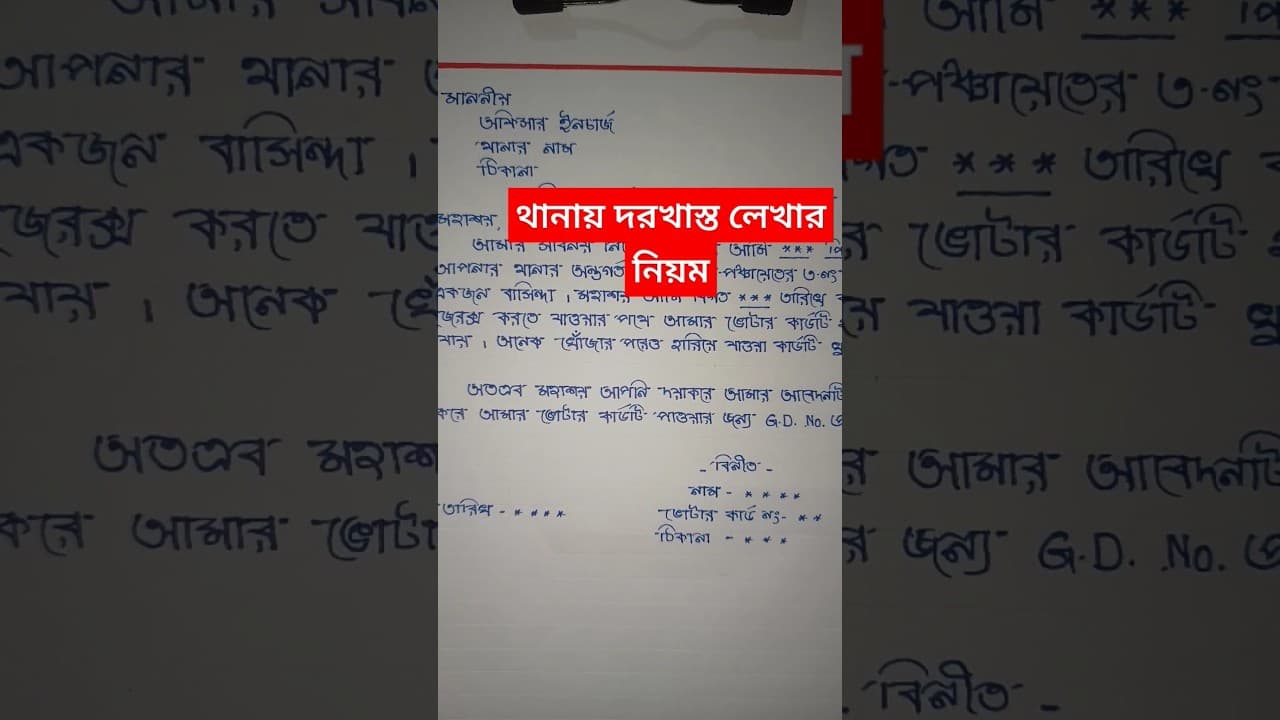 মাননীয়
অফিসার ইনচার্জ
থানার নাম
ঠিকানা
থানায় দরখাস্ত লেখার
নিয়ম
মহাশয়,
আমার সবিনয় আমি *** পি
আপনার থানার অন্তর্গত -পঞ্চায়েতের ৩-নং
একজন বাসিন্দা। মহাশয় আমি বিগত *** তারিখে
জেরক্স করতে যাওয়ার পথে আমার ভোটার কার্ডটি
যায়। অনেক খোঁজার পরেও হারিয়ে যাওয়া কার্ডটি খু
অতএব মহাশয় আপনি দয়াকরে আমার আবেদনটি
করে আমার ভোটার কার্ডটি পাওয়ার জন্য G.D. No.
- বিনীত -
নাম - * * * *
তারিখ - * * * *
ভোটার কার্ড নং- * *
ঠিকানা - * * *